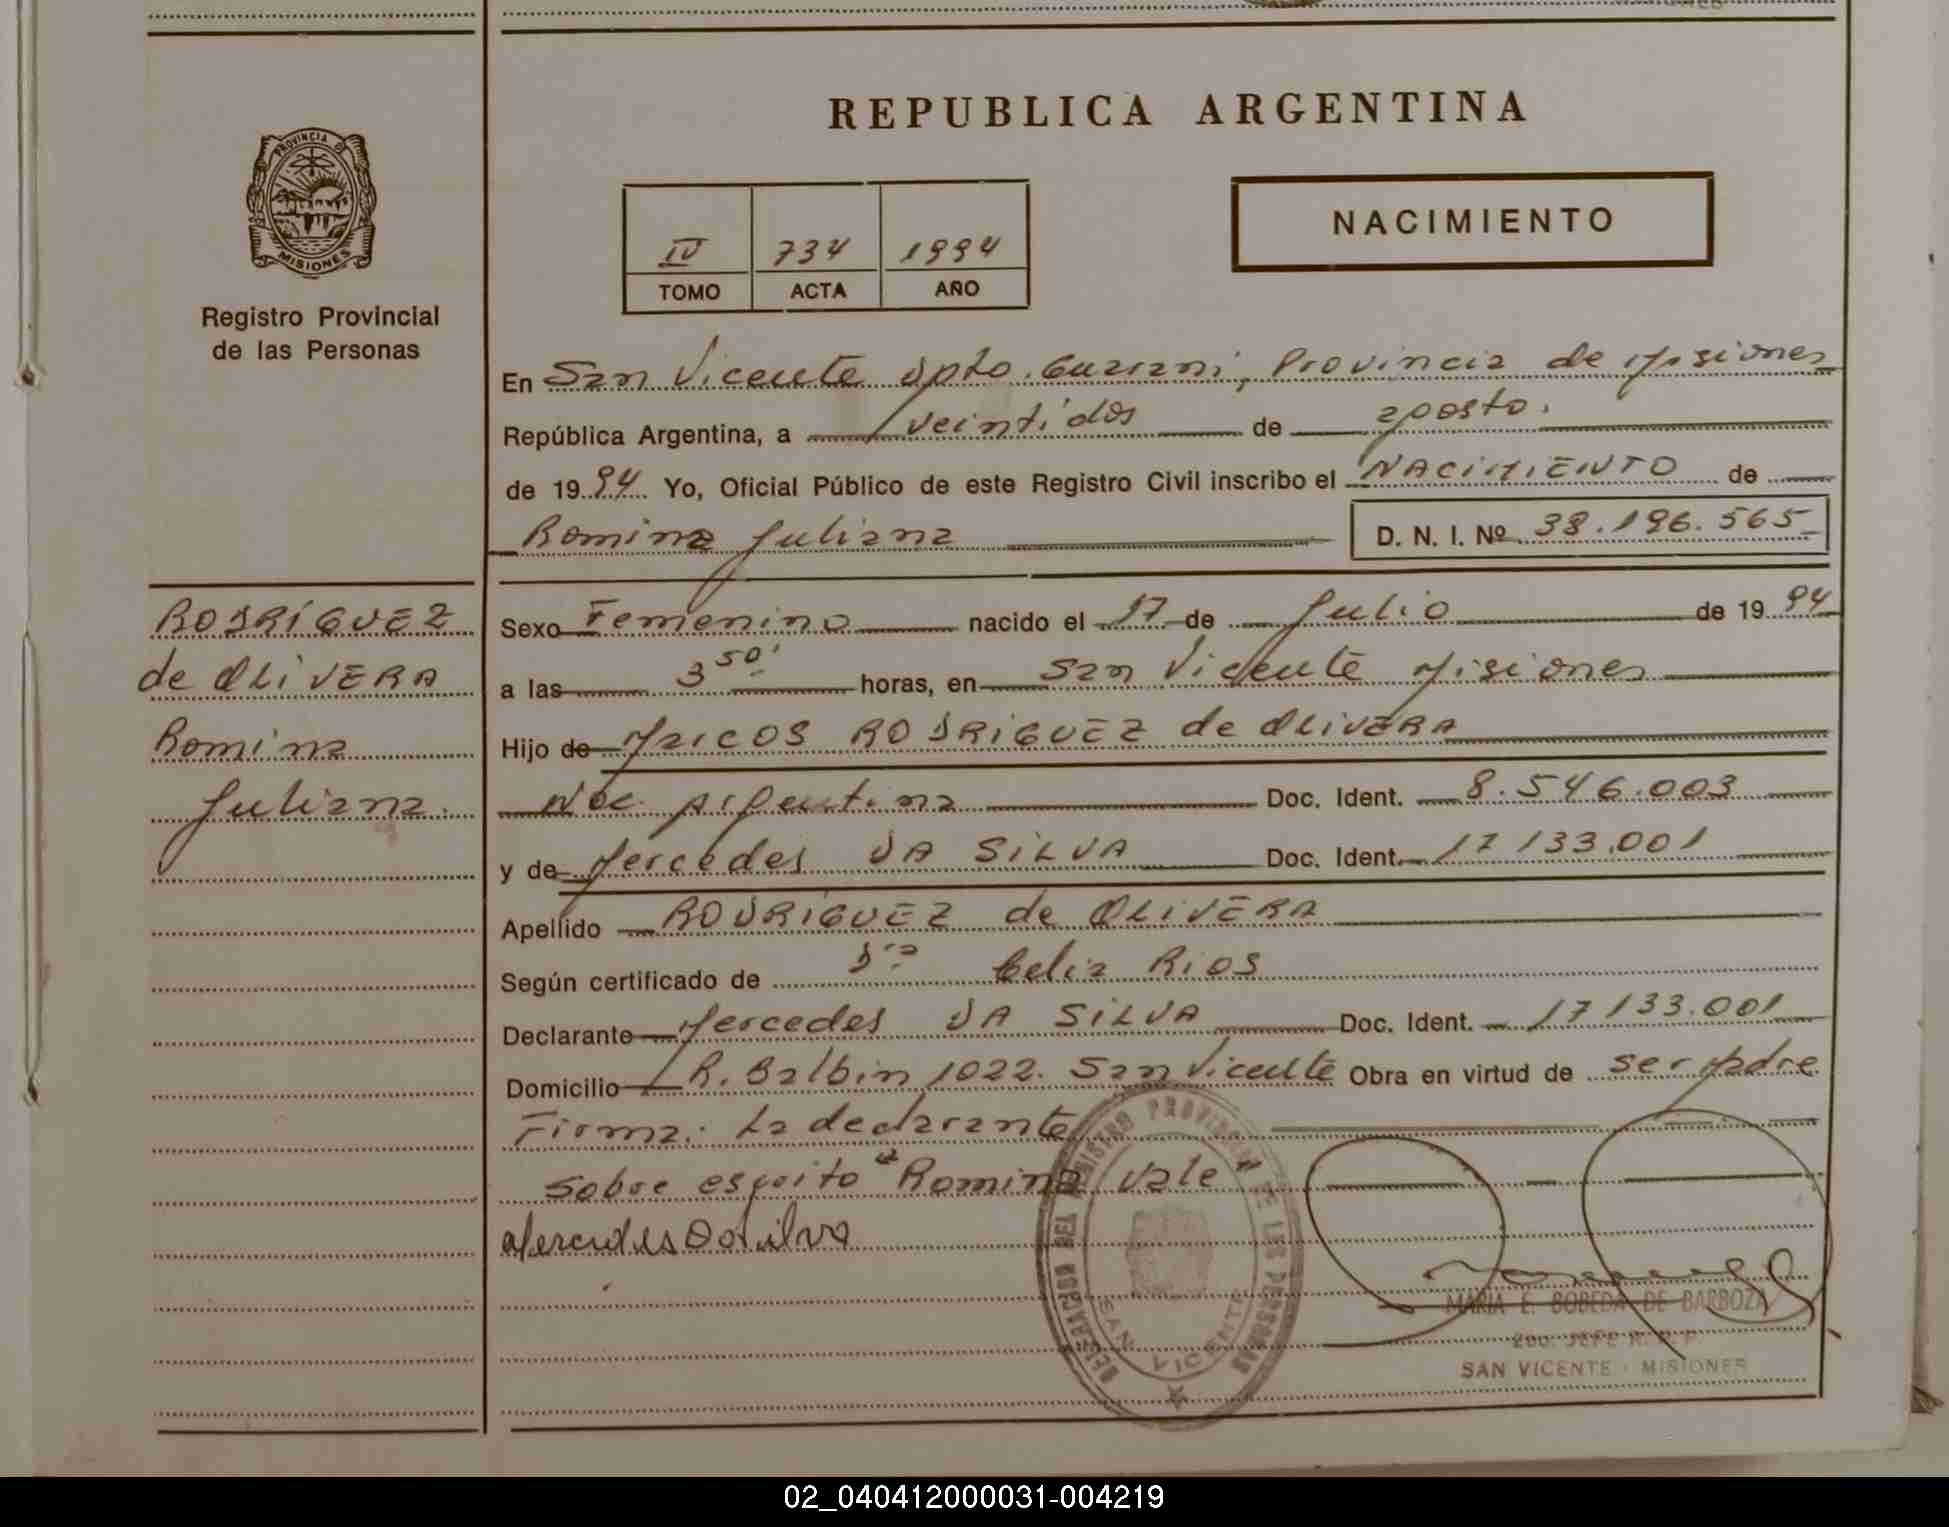 PROVINCIA D
MISIONES
Registro Provincial
de las Personas
RODRÍGUEZ
de OLIVERA
Romina
Juliana.
REPUBLICA ARGENTINA
NACIMIENTO
IV 734 1994
TOMO ACTA AÑO
En San Vicente Dpto. Guarani, Provincia de Misiones
República Argentina, a veintidos de agosto.
de 1994 Yo, Oficial Público de este Registro Civil inscribo el NACIMIENTO de
Romina Juliana D. N. I. Nº 38.196.565
Sexo Femenino nacido el 17 de Julio de 1994
a las 3 50' horas, en San Vicente Misiones
Hijo de Marcos RODRIGUEZ de OLIVERA
Nac. Argentina Doc. Ident. 8.546.003
y de Mercedes DA SILVA Doc. Ident. 17 133.001
Apellido RODRÍGUEZ de OLIVERA
Según certificado de Dra Celia RIOS
Declarante Mercedes DA SILVA Doc. Ident. 17 133.001
Domicilio R. Balbin 1022. San Vicente Obra en virtud de ser Madre
Firma: La declarante
Sobre escrito "Romina vale"
Mercedes Da silva
DELEGACION DEL REGISTRO PROVINCIAL DE LAS PERSONAS
SAN VICENTE
MARIA E. BOBEDA DE BARBOZA
2do. JEFE R. P. P
SAN VICENTE - MISIONES
02_040412000031-004219